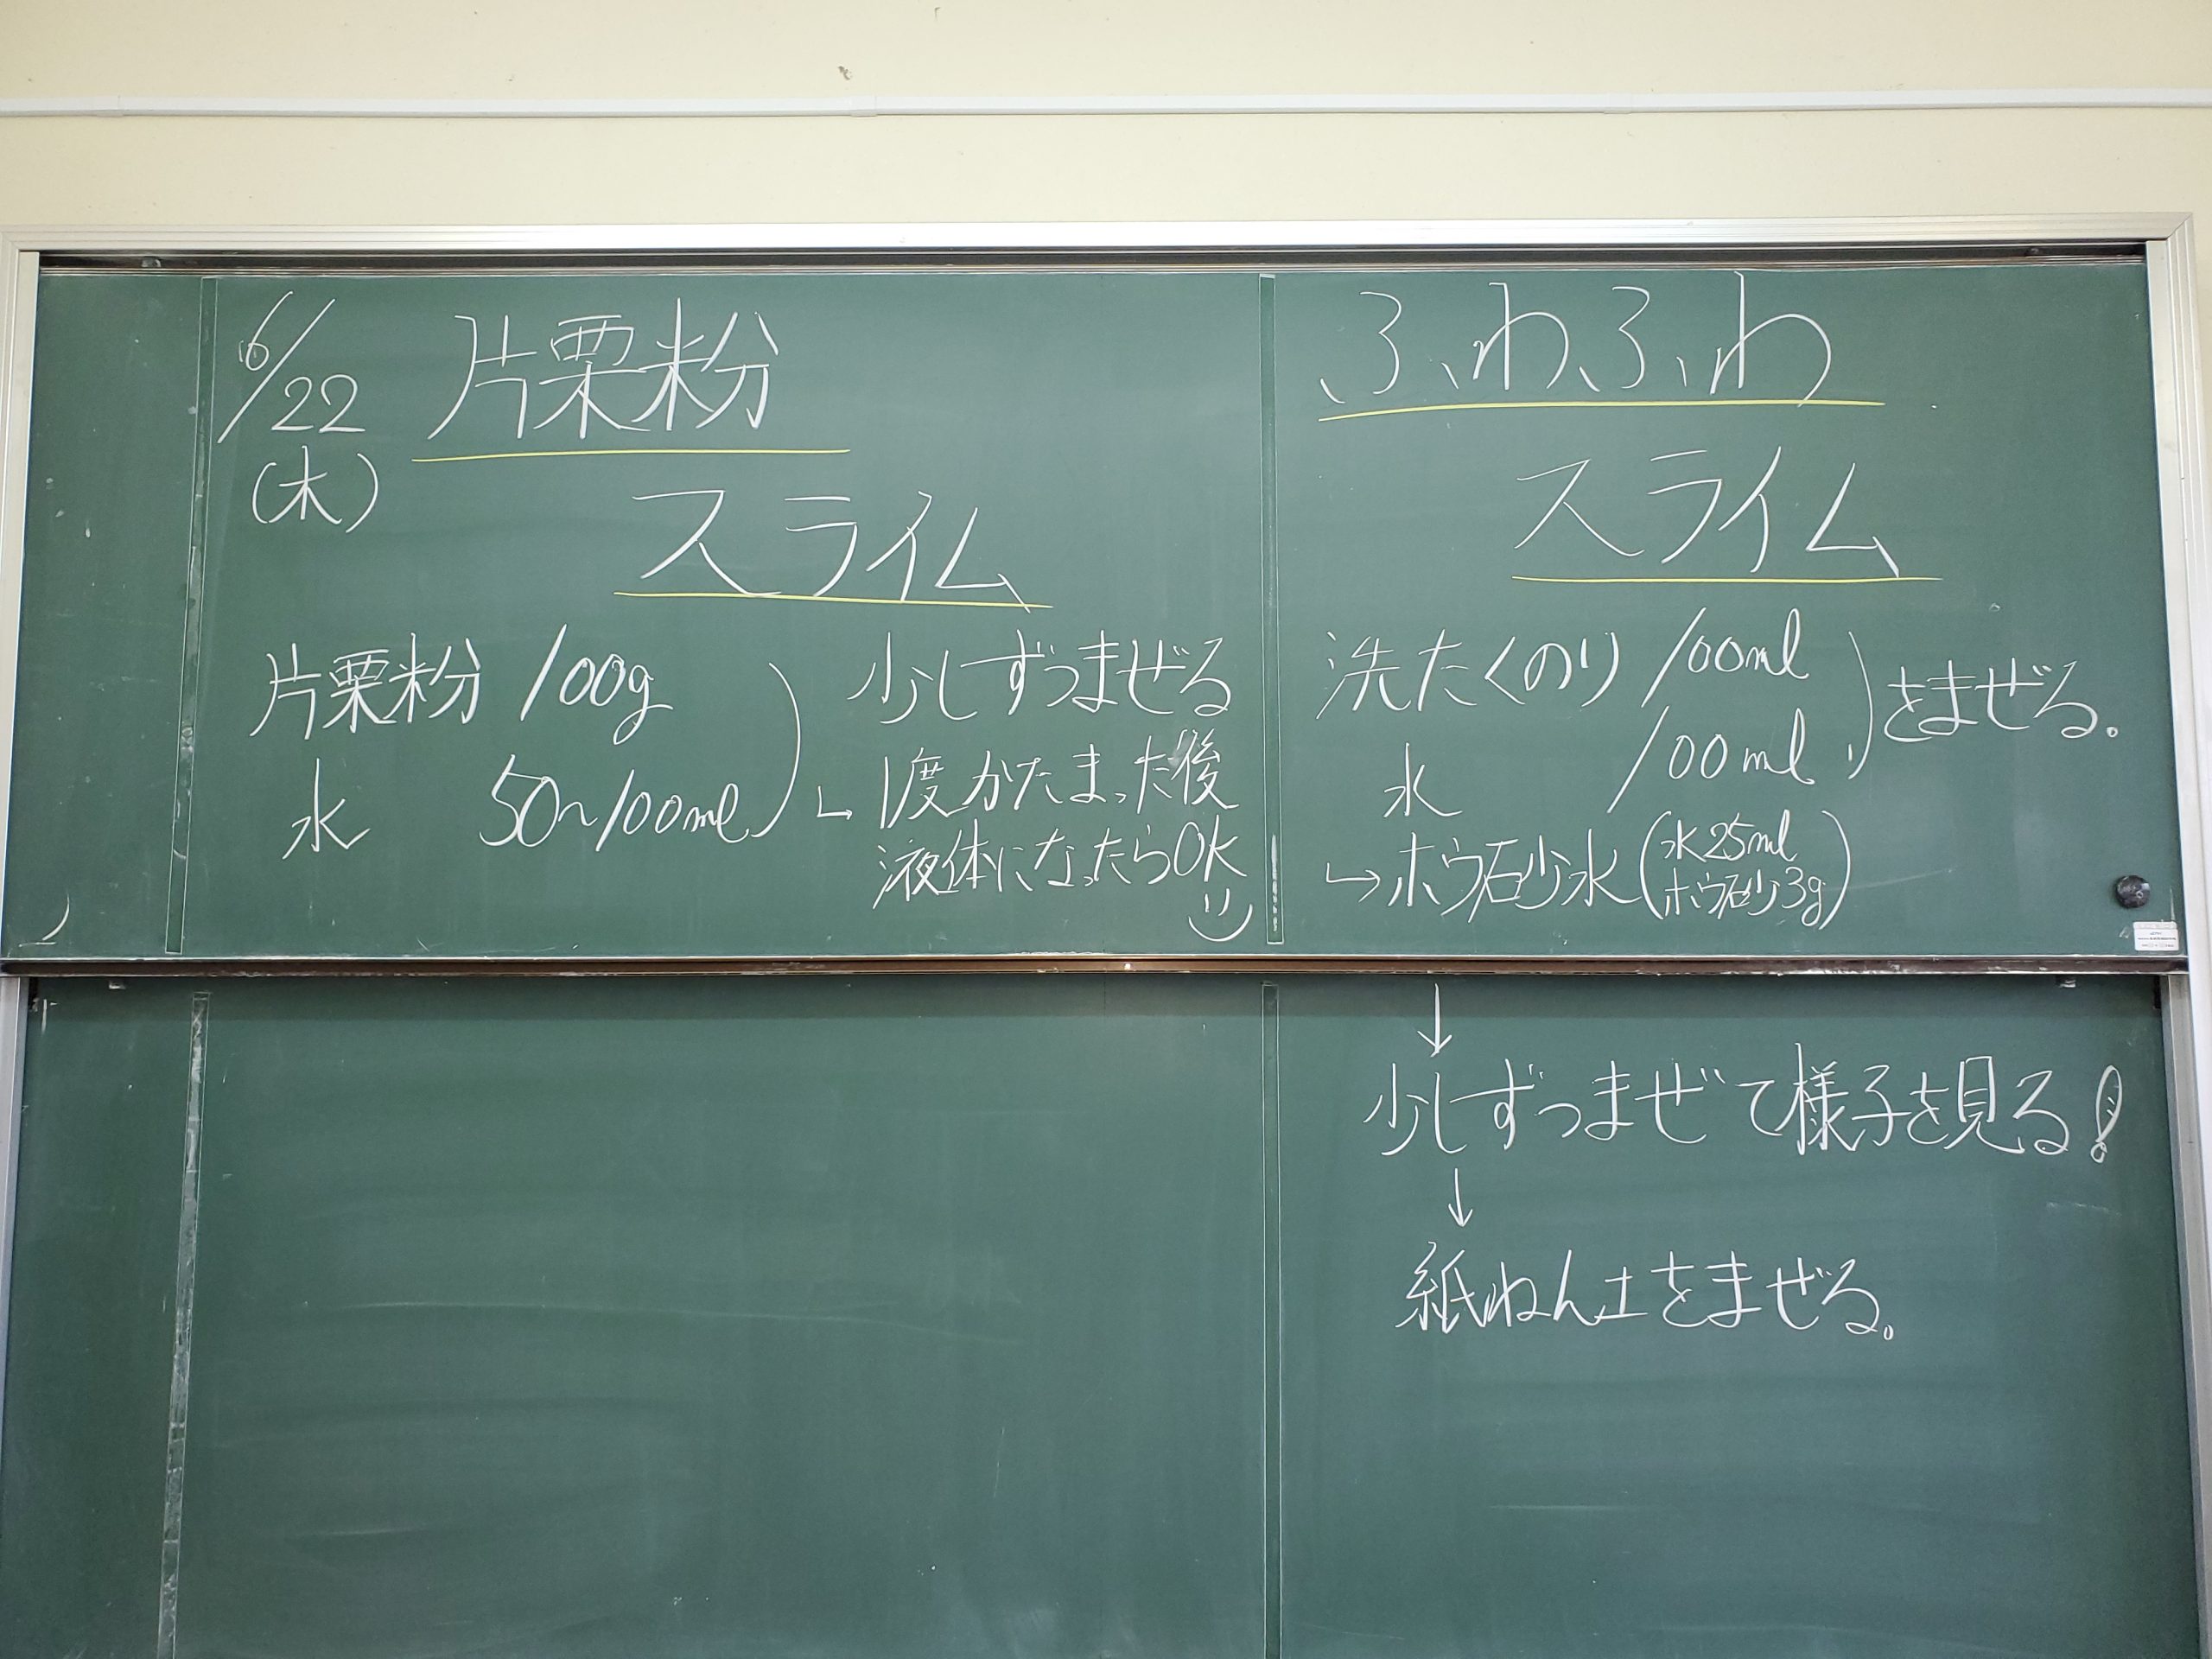 6/22
(木)
片栗粉
スライム
片栗粉 100g
水 50~100ml
少しずつまぜる
↳ 1度かたまった後
液体になったらOK
ふわふわ
スライム
洗たくのり 100ml
水 100ml
をまぜる。
↳ホウ砂水(水25ml
ホウ砂3g)
↓
少しずつまぜて様子を見る!
↓
紙ねん土をまぜる。